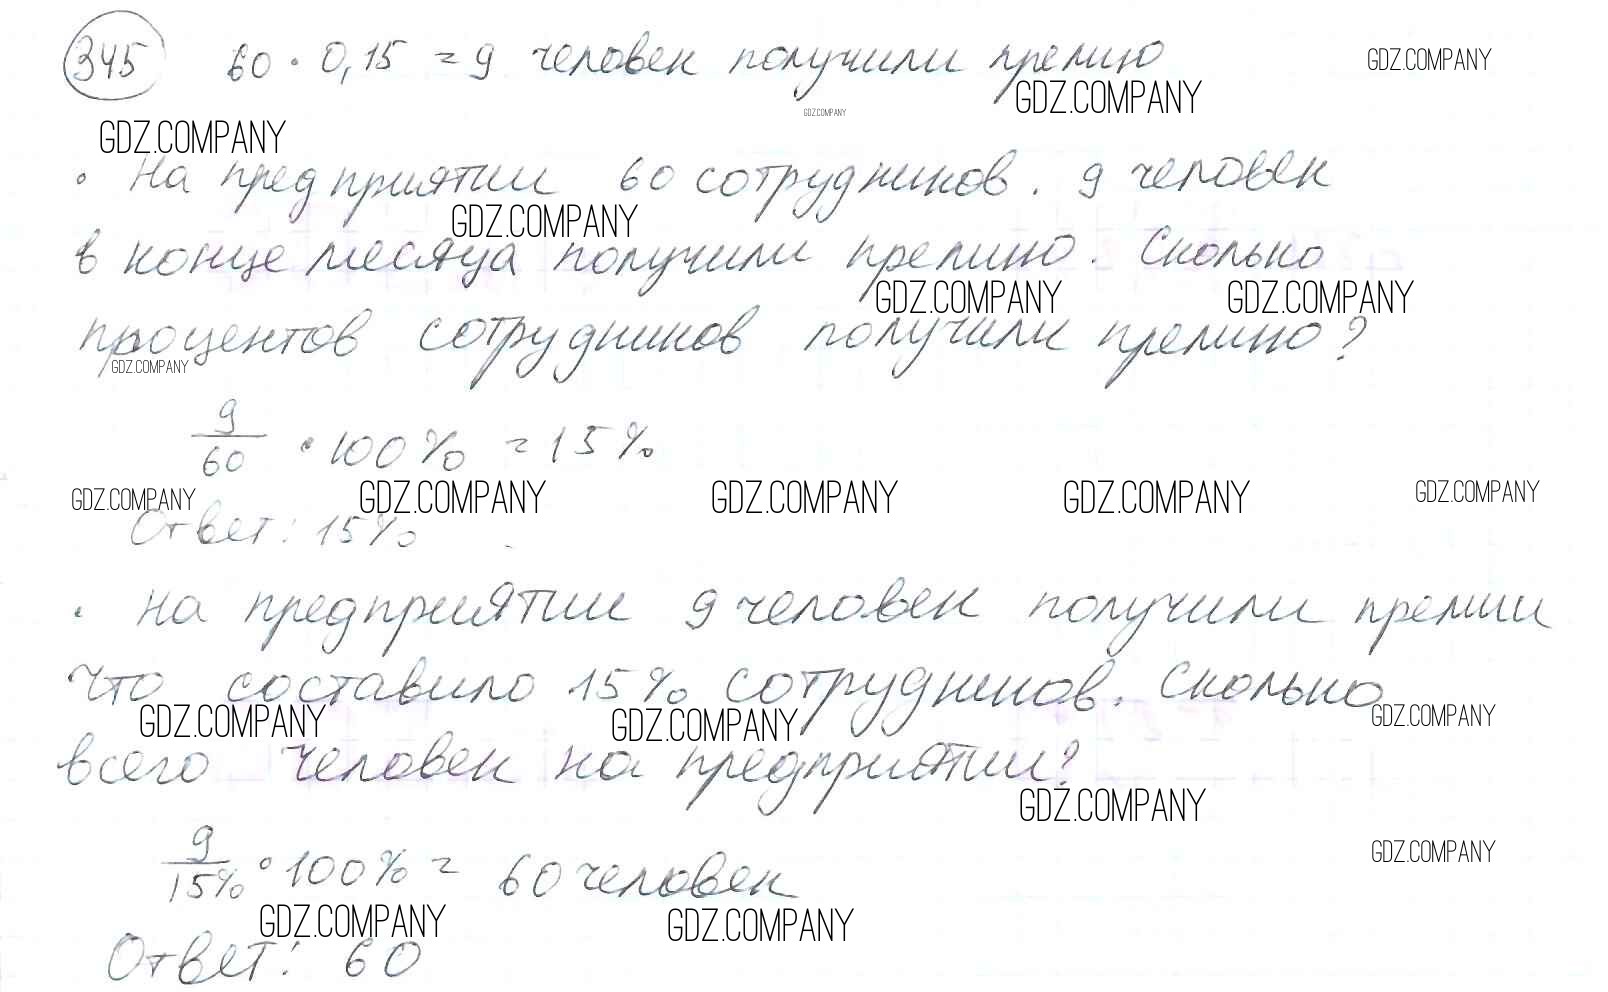 345 60 · 0,15 = 9 человек получили премию
GDZ.COMPANY
GDZ.COMPANY
GDZ.COMPANY
GDZ.COMPANY
· На предприятии 60 сотрудников. 9 человек
GDZ.COMPANY
в конце месяца получили премию. Сколько
GDZ.COMPANY GDZ.COMPANY
процентов сотрудников получили премию?
GDZ.COMPANY
9/60 · 100% = 15%
GDZ.COMPANY GDZ.COMPANY GDZ.COMPANY GDZ.COMPANY GDZ.COMPANY
Ответ: 15%
· На предприятии 9 человек получили премии
что составило 15% сотрудников. Сколько
GDZ.COMPANY GDZ.COMPANY GDZ.COMPANY
всего человек на предприятии?
GDZ.COMPANY
9/15% · 100% = 60 человек
GDZ.COMPANY
GDZ.COMPANY GDZ.COMPANY
Ответ: 60